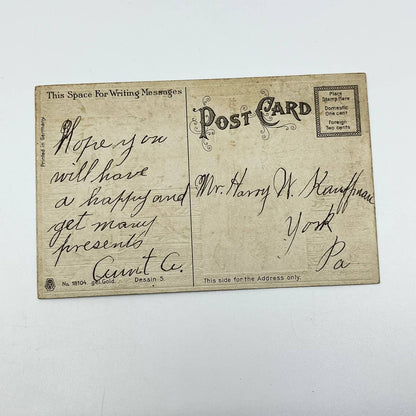 This Space For Writing Messages
POST CARD
Place
Stamp Here
Domestic
One cent
Foreign
Two cents
Printed in Germany
Hope you
will have
a happy and
get many
presents
Aunt C.
Mr. Harry W. Kauffman
York
Pa
No. 18104 gel. Gold. Dessin 5.
This side for the Address only.